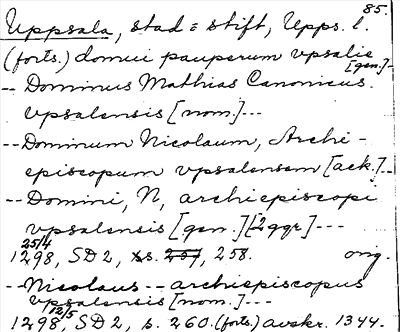 85.
Uppsala, stad = stift, Upps. l.
(forts.) domui pauperum vpsalie
[gen.]-
-- Dominus Mathias Canonicus.
vpsalensis [nom.]---
-- Dominum Nicolaum, Archi-
episcopum vpsalensem [ack.]--
-- Domini, N, archiepiscopi
vpsalensis [gen.][2ggr]---
25/4
1298, SD2, s. 257, 258. orig.
-- Nicolaus -- archiepiscopus
vpsalensis [nom.]---
12/5
1298, SD2, s. 260. (forts.) avskr. 1344.